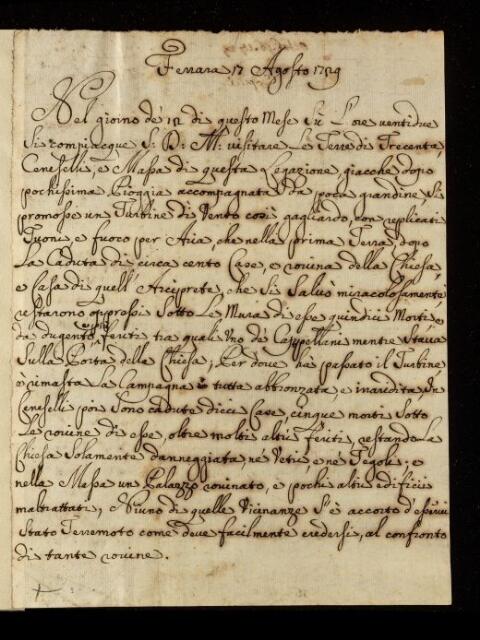 Ferrara 17 Agosto 1729
Nel giorno de' 12 di questo Mese Sù l'ore ventidue
Si compiacque S: D: M: visitare Le Terre di Trecenta,
Ceneselli, e Massa di questa Legazione, giacche dopo
pochissima Pioggia accompagnata da poca grandine, Si
promosse un Turbine di Vento così gagliardo, con replicati
Tuoni, e fuoco per Aria, che nella prima Terra, dopo
La Caduta di circa cento Case, e rovina della Chiesa,
e Casa di quell' Arciprete, che Si Salvò miracolosamente
restarono oppressi Sotto Le Mura di esse quindici Morti, e
da dugento feriti tra quali Uno de' Cappellani mentre Stava
Sulla Porta della Chiesa, Per dove hà passato il Turbine
è rimasta La Campagna tutta abbronzata, e inaridita. In
Ceneselli poi Sono cadute dieci Case, cinque morti Sotto
Le rovine di esse, oltre molti altri feriti, restando La
Chiesa Solamente danneggiata, ne' Vetri, e ne' Tegoli; e
nella Massa un Palazzo rovinato, e pochi altri edifici
maltrattati, Niuno di quelle Vicinanze S'è accorto d'esservi
Stato Terremoto come deve facilmente credersi, al confronto
di tante rovine.